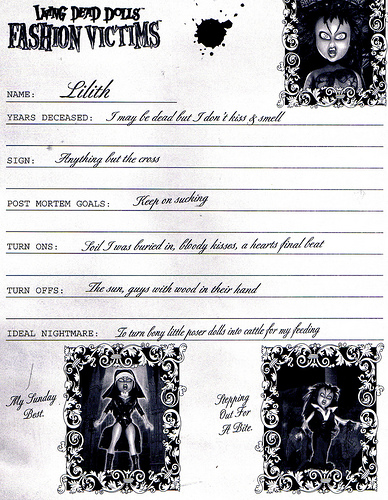 LIVING DEAD DOLLS
FASHION VICTIMS
NAME: Lilith
YEARS DECEASED: I may be dead but I don't kiss & smell
SIGN: Anything but the cross
POST MORTEM GOALS: Keep on sucking
TURN ONS: Soil I was buried in, bloody kisses, a hearts final beat
TURN OFFS: The sun, guys with wood in their hand
IDEAL NIGHTMARE: To turn bony little poser dolls into cattle for my feeding
My Sunday
Best.
Stepping
Out For
A Bite.